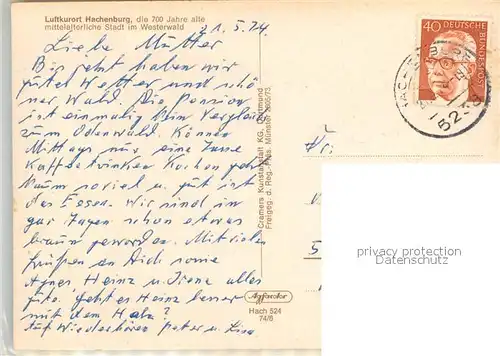 Luftkurort Hachenburg, die 700 Jahre alte
mittelalterliche Stadt im Westerwald
21.5.74
Liebe Mutter
Bis jetzt haben wir
gutes Wetter und schö
ner Wald. Die Pension
ist einmalig kein Vergleich
zum Odenwald. Können
Mittags nur eine Tasse
Kaffetrinken Kuchen geht
kaum soviel u. gut ist
das Essen. Wir sind in
paar Tagen schon etwas
braun geworden. Mit vielen
Grüßen an Dich sowie
Agnes Heinz u. Irene alles
gute. geht es Heinz besser
mit dem Hals?
Auf Wiederhören Peter u. Lisa
Cramers Kunstanstalt KG, Dortmund
Freigeg. d. Reg.-Präs. Münster
Agfacolor
Hach 524
74/6
40
DEUTSCHE
BUNDESPOST
5238
Fr.
5
privacy protection
watermark